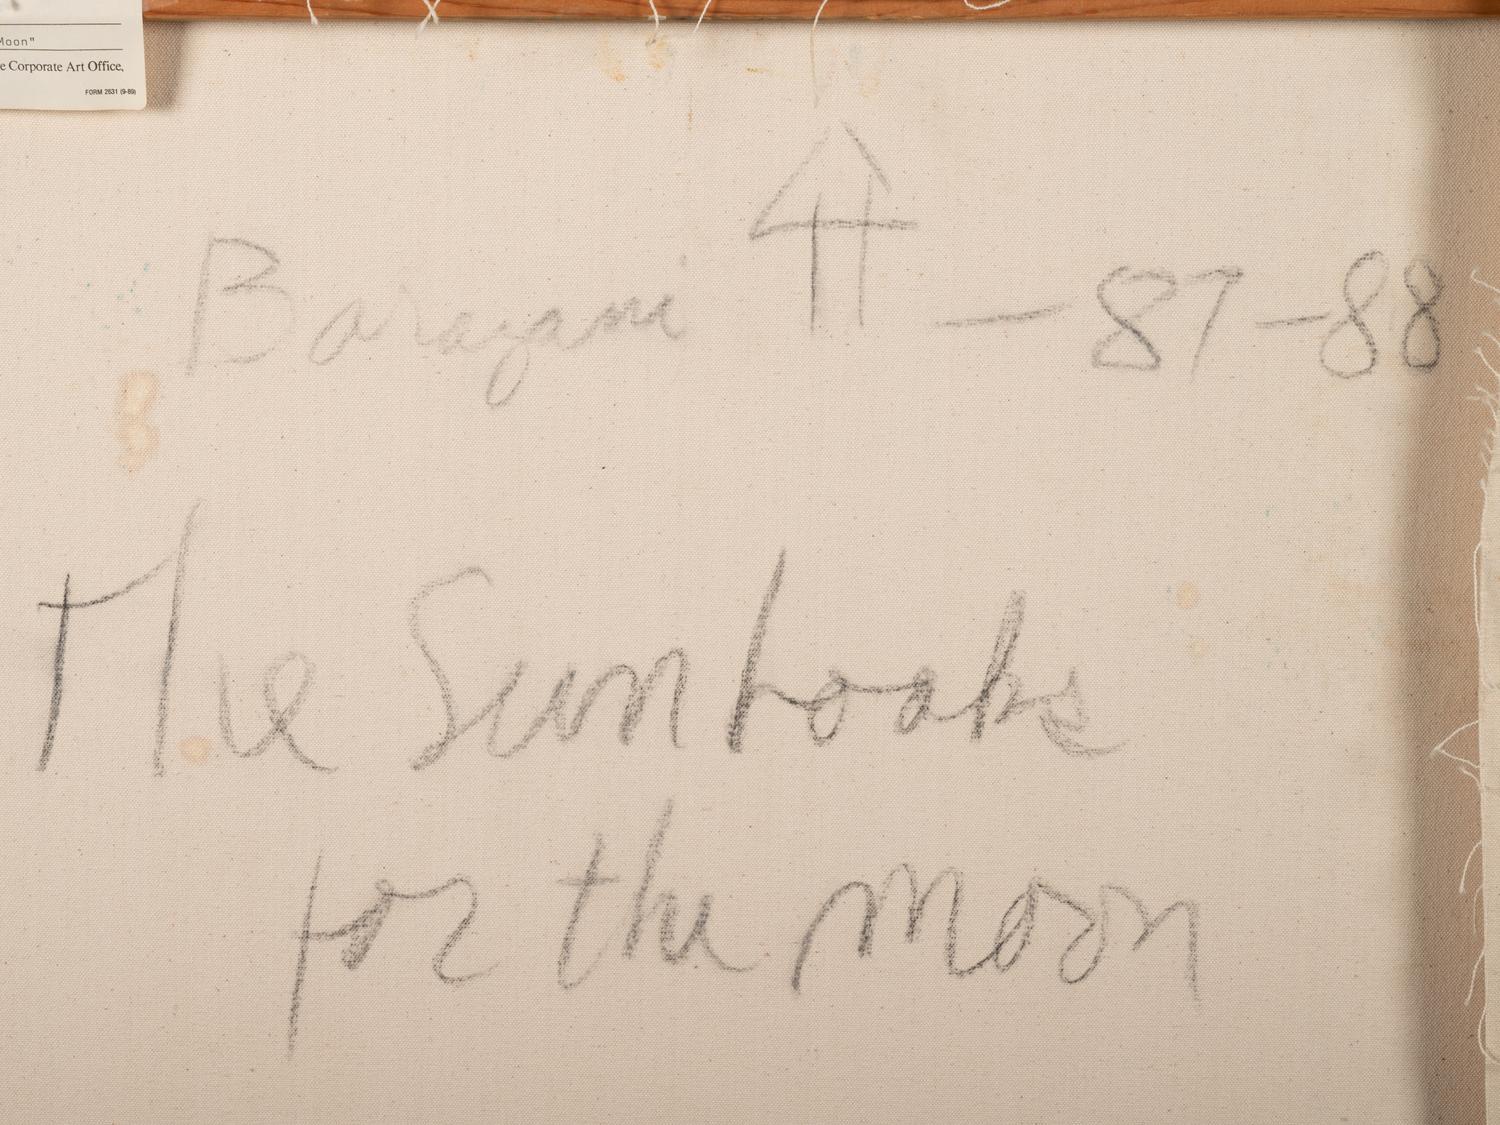 Moon"
e Corporate Art Office,
FORM 2631 (9-89)
Barazani — 87-88
The Sun Looks
for the Moon